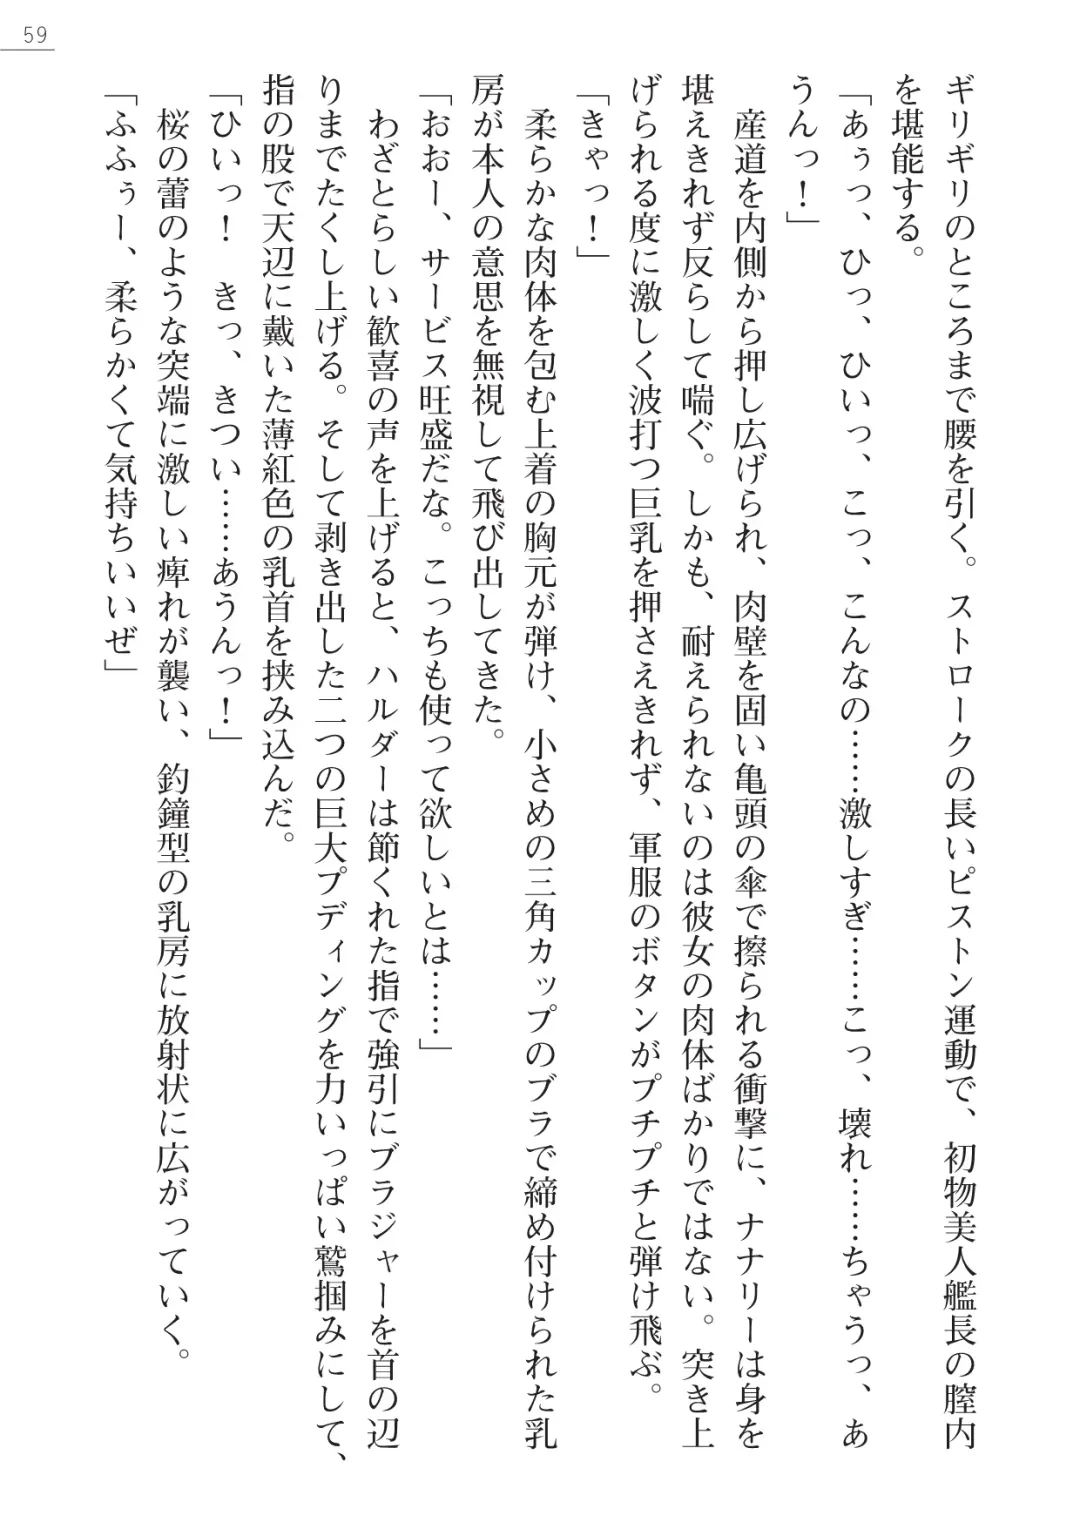 59
ギリギリのところまで腰を引く。ストロークの長いピストン運動で、初物美人艦長の膣内
を堪能する。
「あぅっ、ひっ、ひいっ、こっ、こんなの……激しすぎ……こっ、壊れ……ちゃうっ、あ
うんっ！」
産道を内側から押し広げられ、肉壁を固い亀頭の傘で擦られる衝撃に、ナナリーは身を
堪えきれず反らして喘ぐ。しかも、耐えられないのは彼女の肉体ばかりではない。突き上
げられる度に激しく波打つ巨乳を押さえきれず、軍服のボタンがプチプチと弾け飛ぶ。
「きゃっ！」
柔らかな肉体を包む上着の胸元が弾け、小さめの三角カップのブラで締め付けられた乳
房が本人の意思を無視して飛び出してきた。
「おおー、サービス旺盛だな。こっちも使って欲しいとは……」
わざとらしい歓喜の声を上げると、ハルダーは節くれた指で強引にブラジャーを首の辺
りまでたくし上げる。そして剥き出した二つの巨大プディングを力いっぱい鷲掴みにして、
指の股で天辺に戴いた薄紅色の乳首を挟み込んだ。
「ひいっ！　きっ、きつい……あうんっ！」
桜の蕾のような突端に激しい痺れが襲い、釣鐘型の乳房に放射状に広がっていく。
「ふふぅー、柔らかくて気持ちいいぜ」